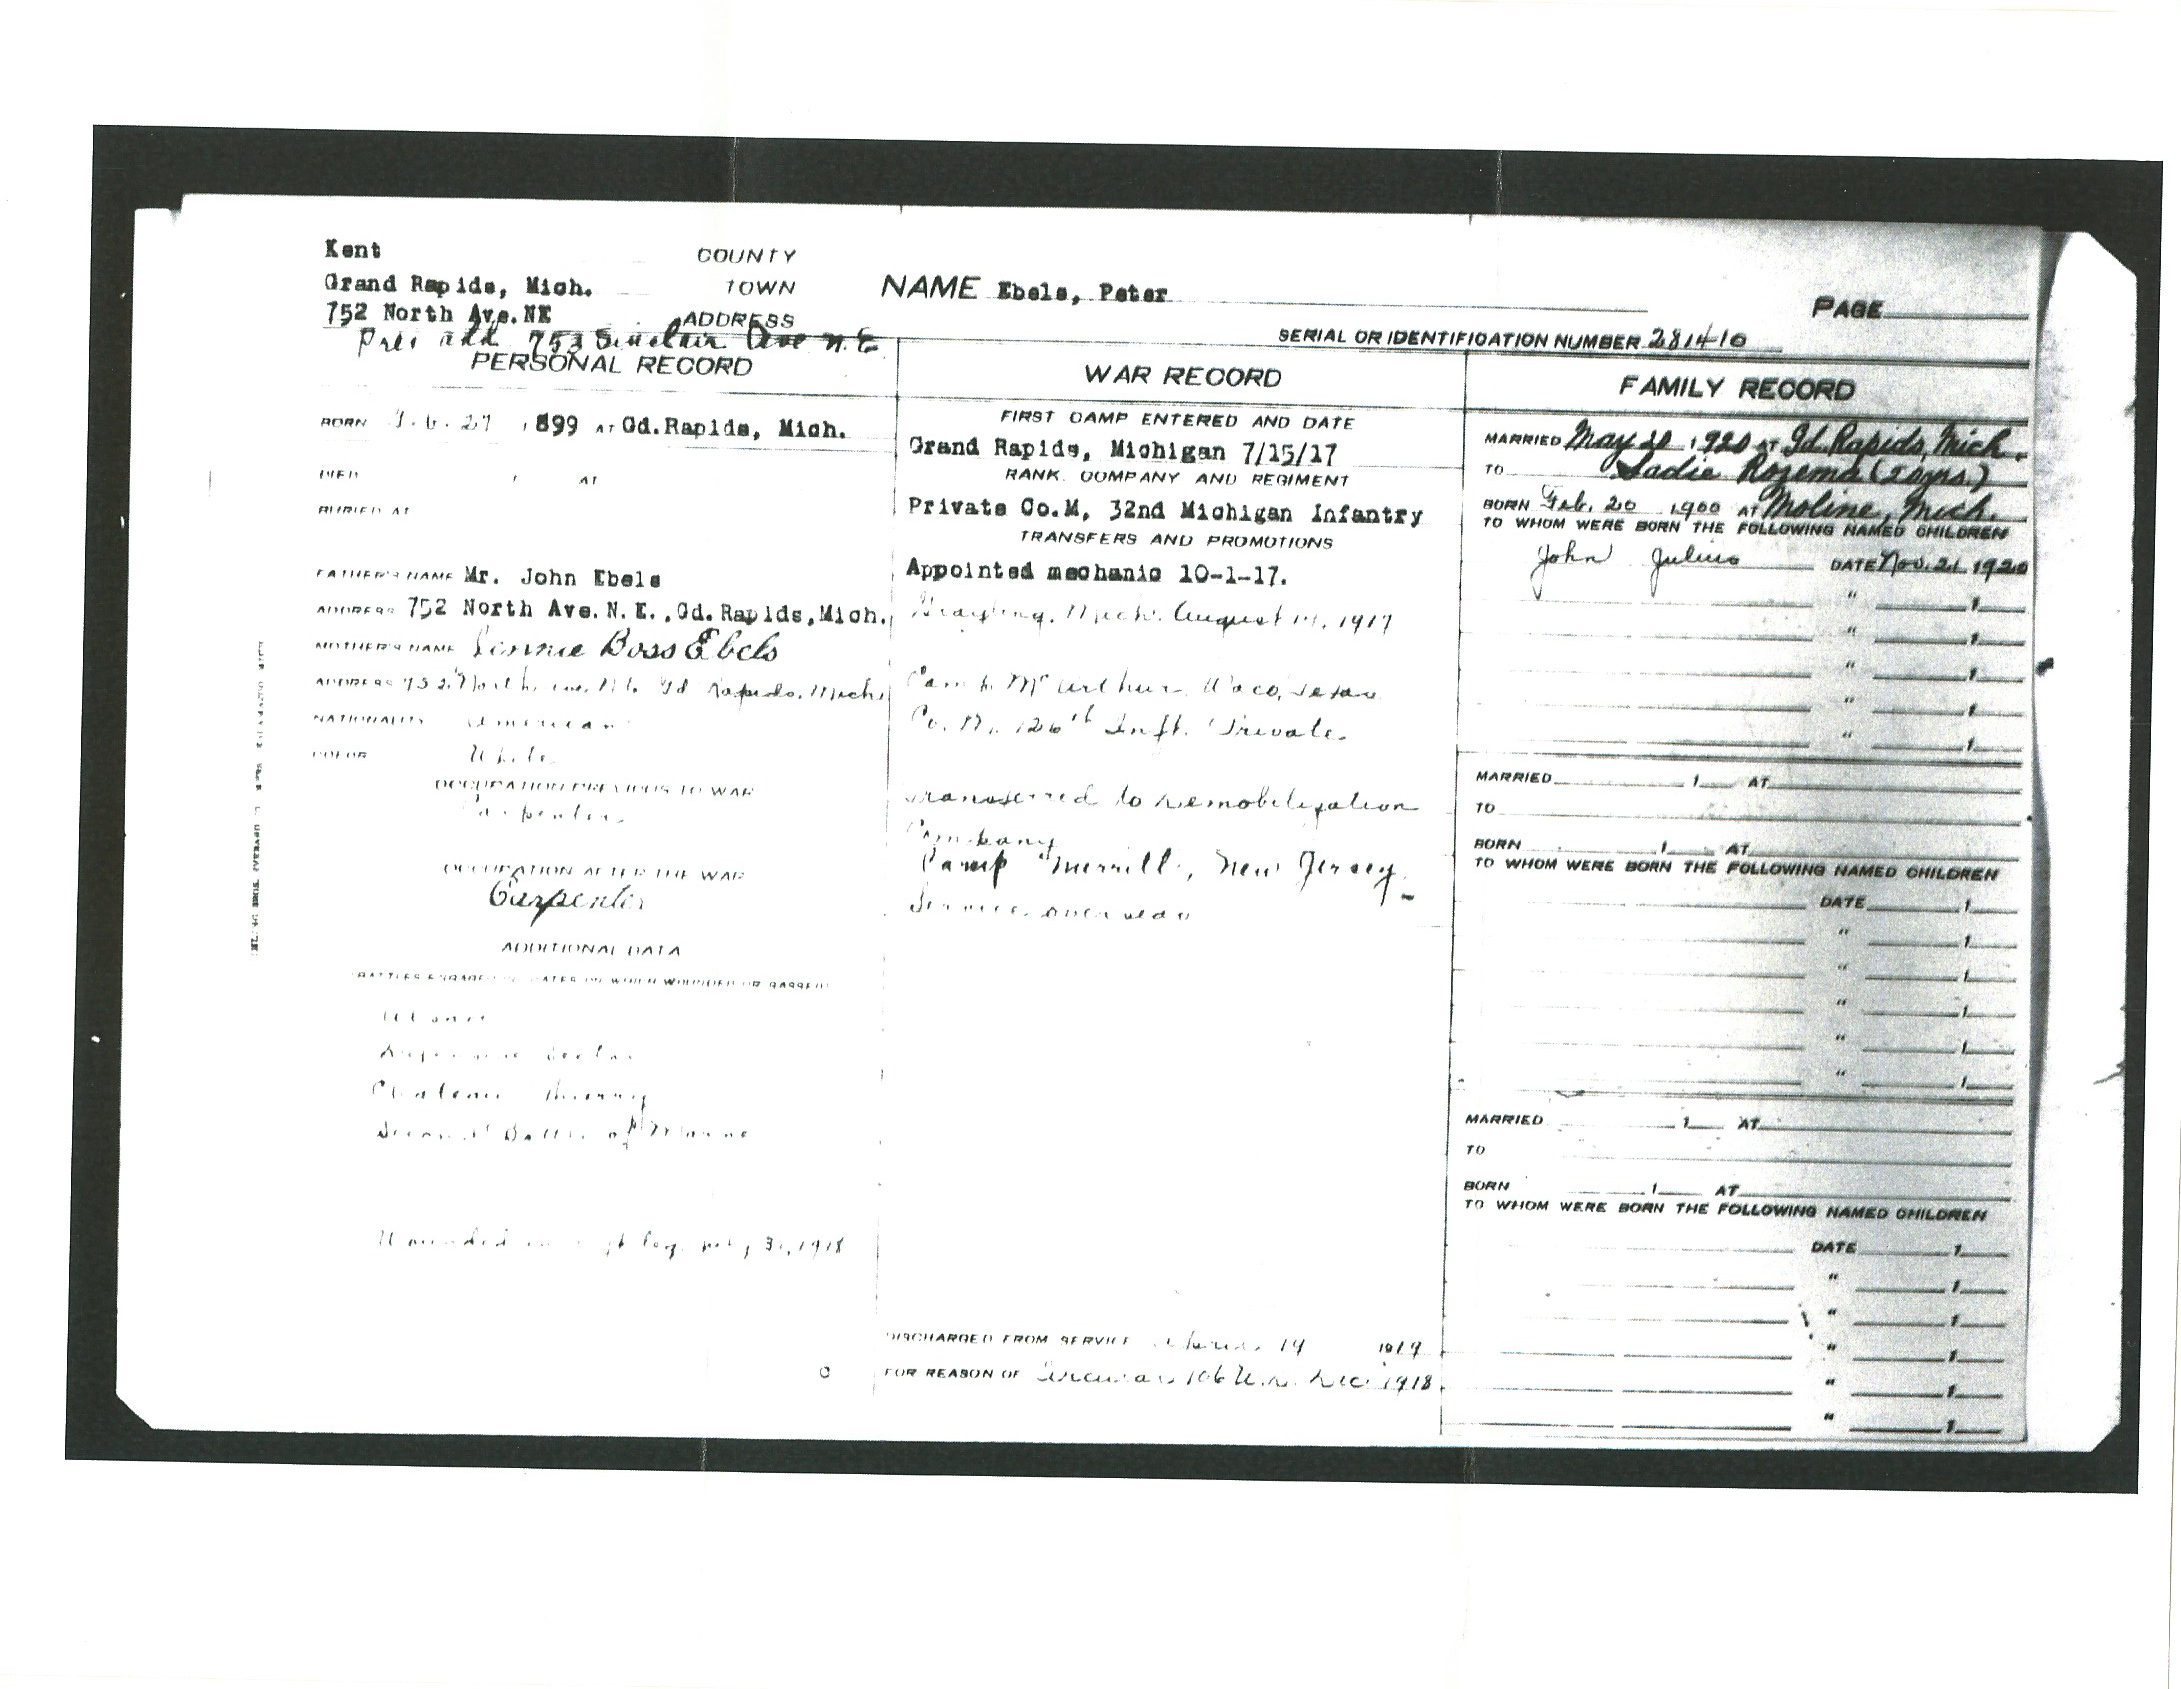 Kent COUNTY
Grand Rapids, Mich. TOWN
752 North Ave.NE ADDRESS
Pres add 753 Sinclair Ave N.E.
NAME Ebels, Peter
PAGE
SERIAL OR IDENTIFICATION NUMBER 281410
PERSONAL RECORD
BORN Feb. 27, 1899 AT Gd.Rapids, Mich.
DIED , AT
BURIED AT
FATHER'S NAME Mr. John Ebels
ADDRESS 752 North Ave.N.E.,Gd.Rapids,Mich.
MOTHER'S NAME Boss Ebels
ADDRESS 752 North Ave. N.E. Gd Rapids, Mich.
NATIONALITY American
COLOR White
OCCUPATION PREVIOUS TO WAR
Carpenter
OCCUPATION AFTER THE WAR
Carpenter
ADDITIONAL DATA
BATTLES ENGAGED IN, DATES ON WHICH WOUNDED OR GASSED
Sector
Chateau Thierry
Second Battle of Marne
Wounded in leg 31, 1918
WAR RECORD
FIRST CAMP ENTERED AND DATE
Grand Rapids, Michigan 7/15/17
RANK, COMPANY AND REGIMENT
Private Co.M, 32nd Michigan Infantry
TRANSFERS AND PROMOTIONS
Appointed mechanic 10-1-17.
Grayling, Mich. August 1917
Camp McArthur, Waco, Texas
Co. M. 126th Inft. Private.
Transferred to Demobilization
Company
Camp Merrill, New Jersey.
Service overseas
DISCHARGED FROM SERVICE 19 1919
FOR REASON OF Circular 106 W.D. Dec. 1918.
FAMILY RECORD
MARRIED May 20 1920 AT Gd. Rapids, Mich.
TO Sadie Rozema
BORN Feb. 20 1900 AT Moline, Mich.
TO WHOM WERE BORN THE FOLLOWING NAMED CHILDREN
John Julius DATE Nov. 21 1920
" 1
" 1
" 1
" 1
" 1
MARRIED 1 AT
TO
BORN 1 AT
TO WHOM WERE BORN THE FOLLOWING NAMED CHILDREN
DATE 1
" 1
" 1
" 1
" 1
" 1
MARRIED 1 AT
TO
BORN 1 AT
TO WHOM WERE BORN THE FOLLOWING NAMED CHILDREN
DATE 1
" 1
" 1
" 1
" 1
" 1